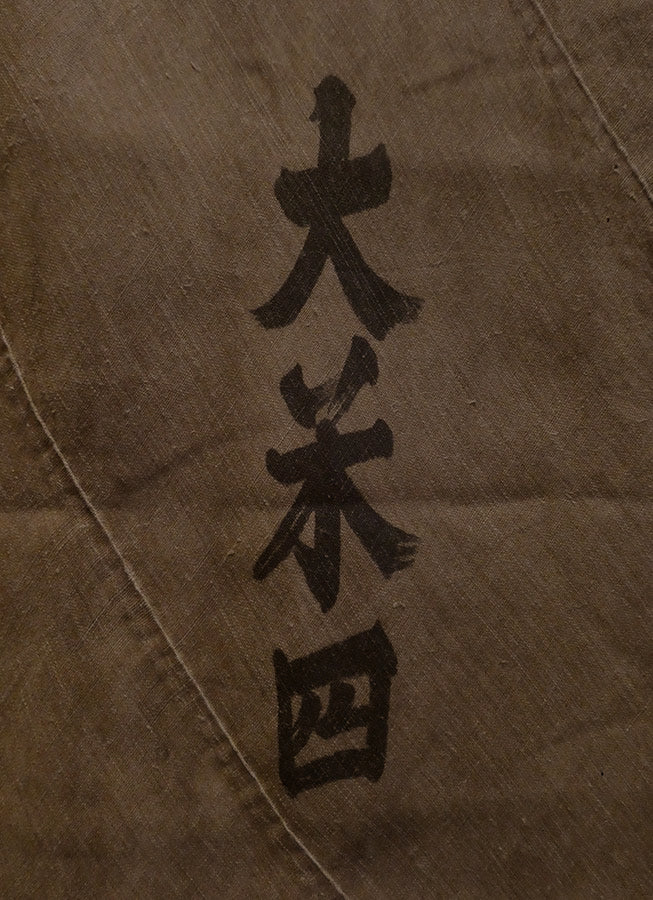 大米四